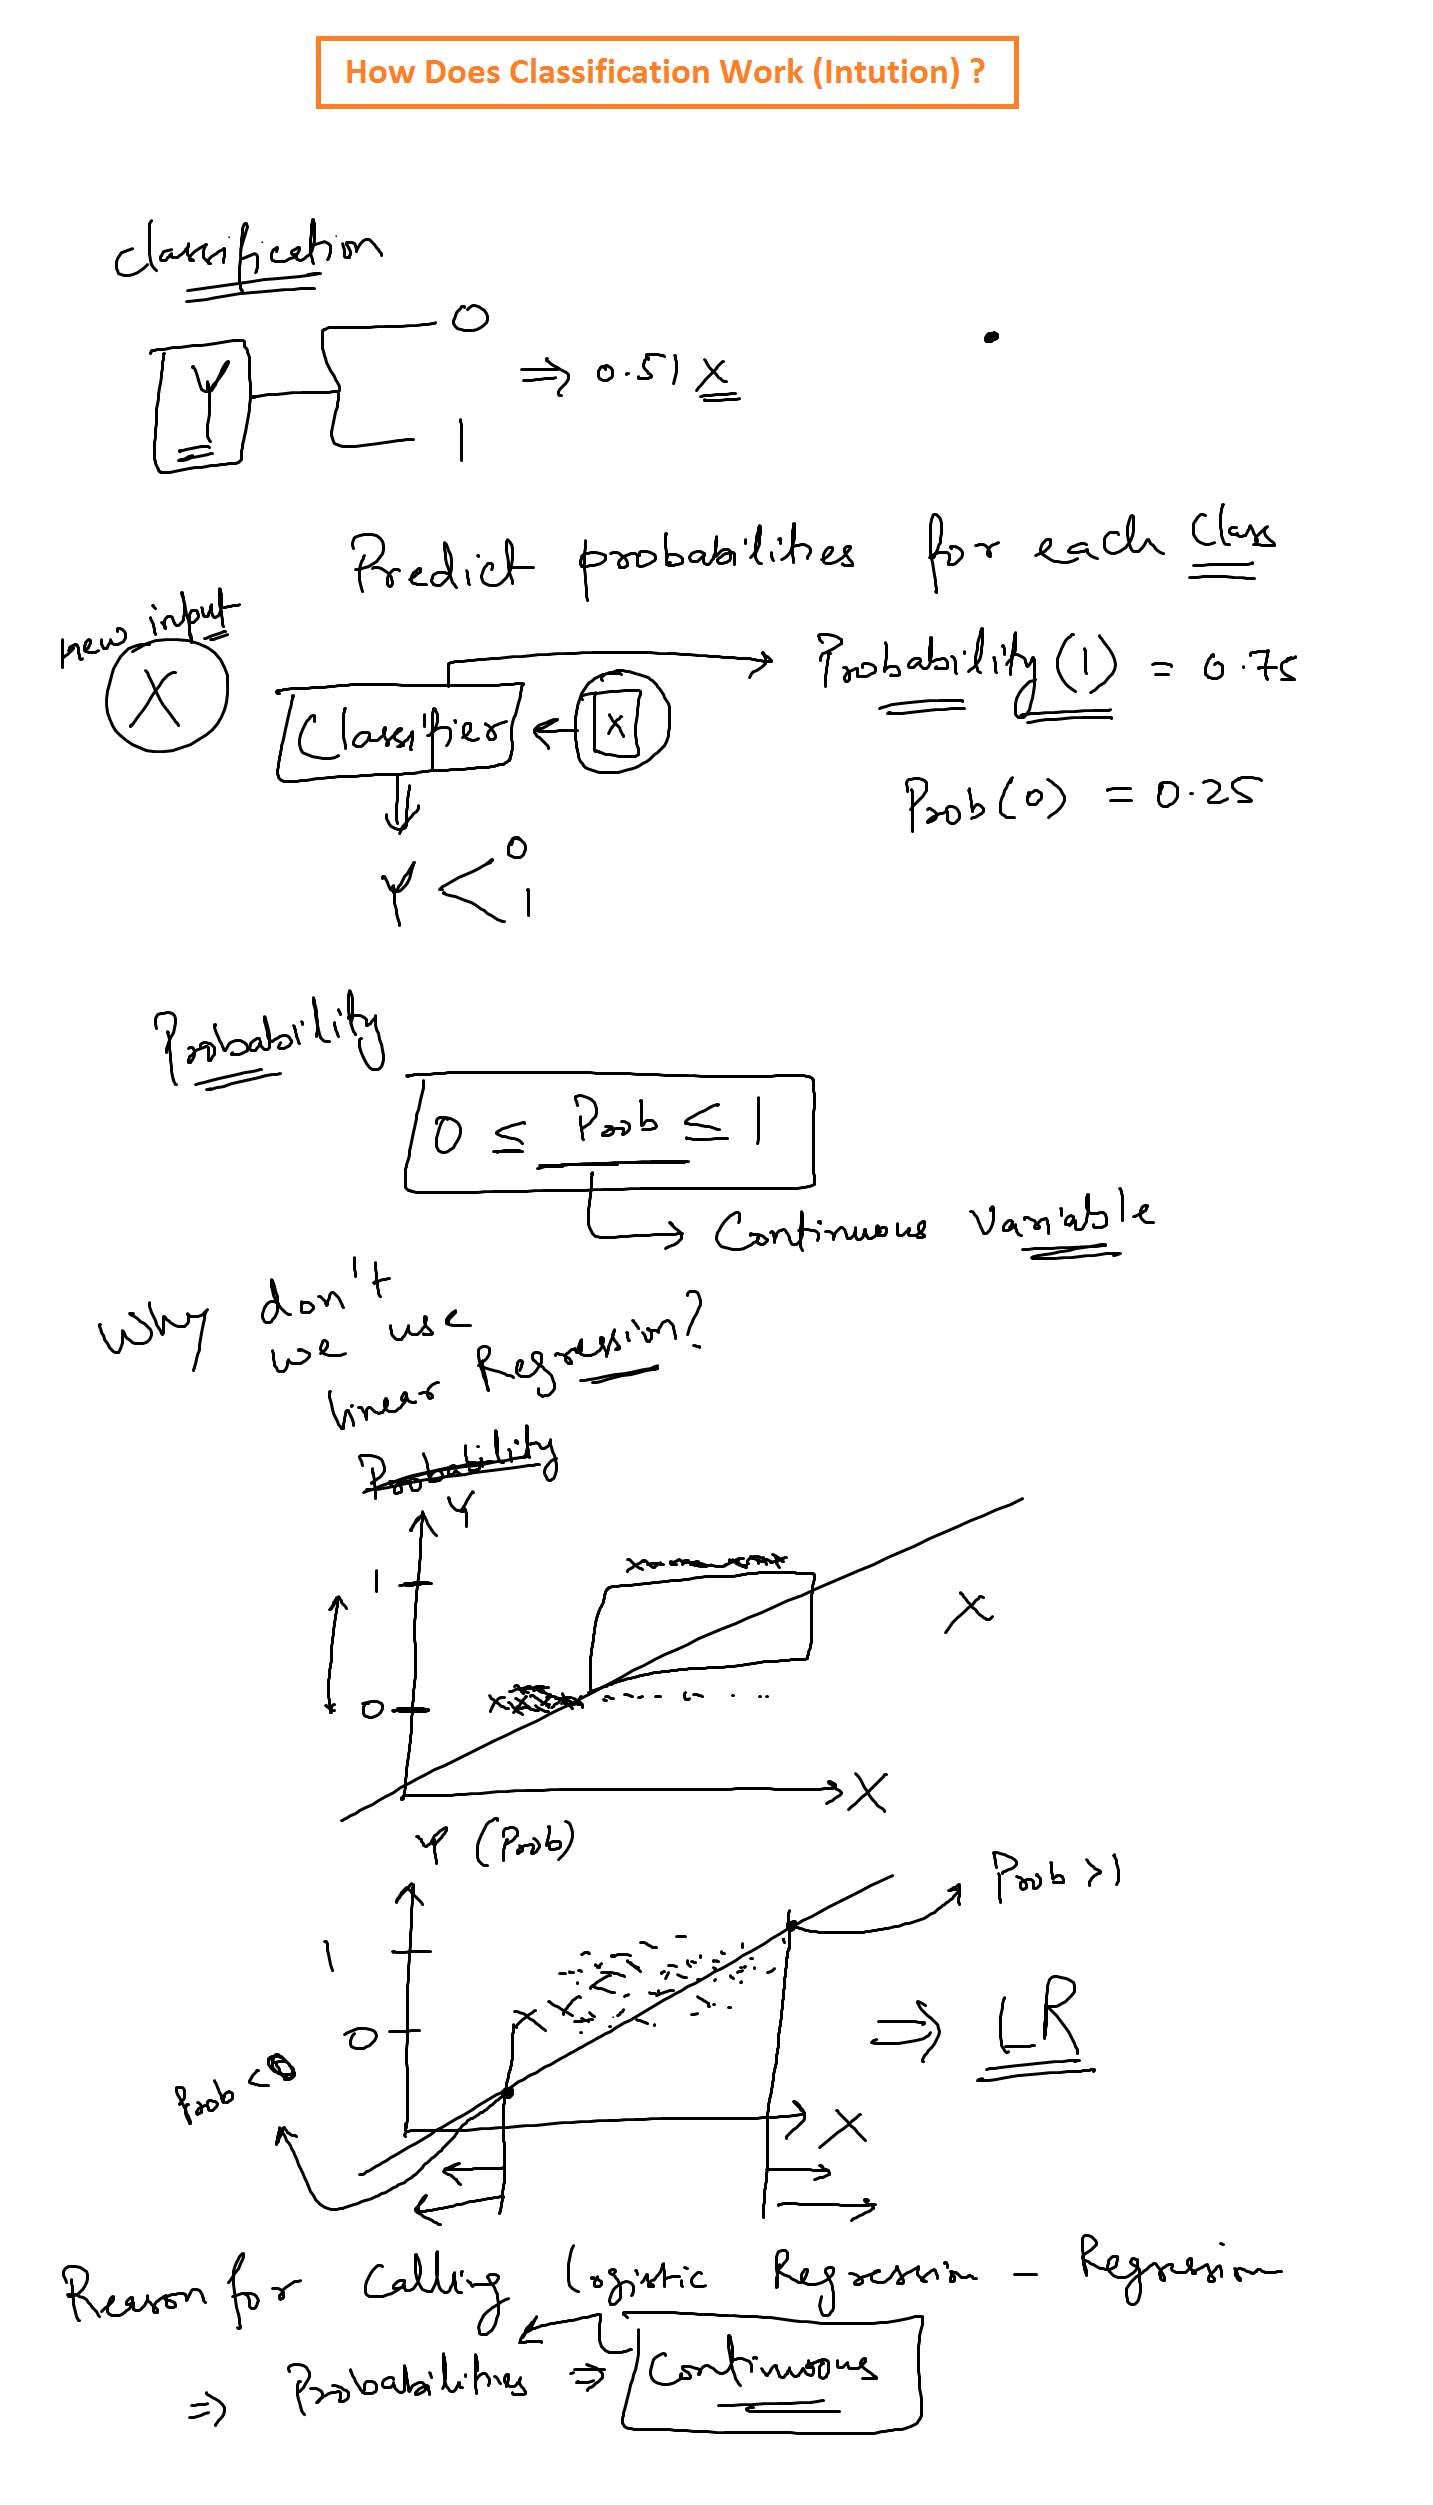 How Does Classification Work (Intution) ?
Classification
0
Y
⇒ 0.51 X
1
Predict probabilities for each Class
new input
X
Classifier
X
Probability (1) = 0.75
Prob (0) = 0.25
Y < 0
1
Probability
0 ≤ Prob ≤ 1
Continuous Variable
Why don't
we use
linear Regression?
Probability
Y
1
X
0
X
Y (Prob)
Prob > 1
1
0
⇒ LR
Prob < 0
X
Reason for Calling Logistic Regression - Regression
⇒ Probabilities ⇒ Continuous